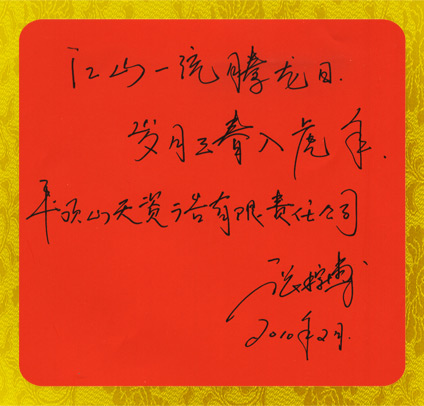 江山一统腾龙日.
岁月三春入虎年.
平顶山天资广告有限责任公司
2010年2月.